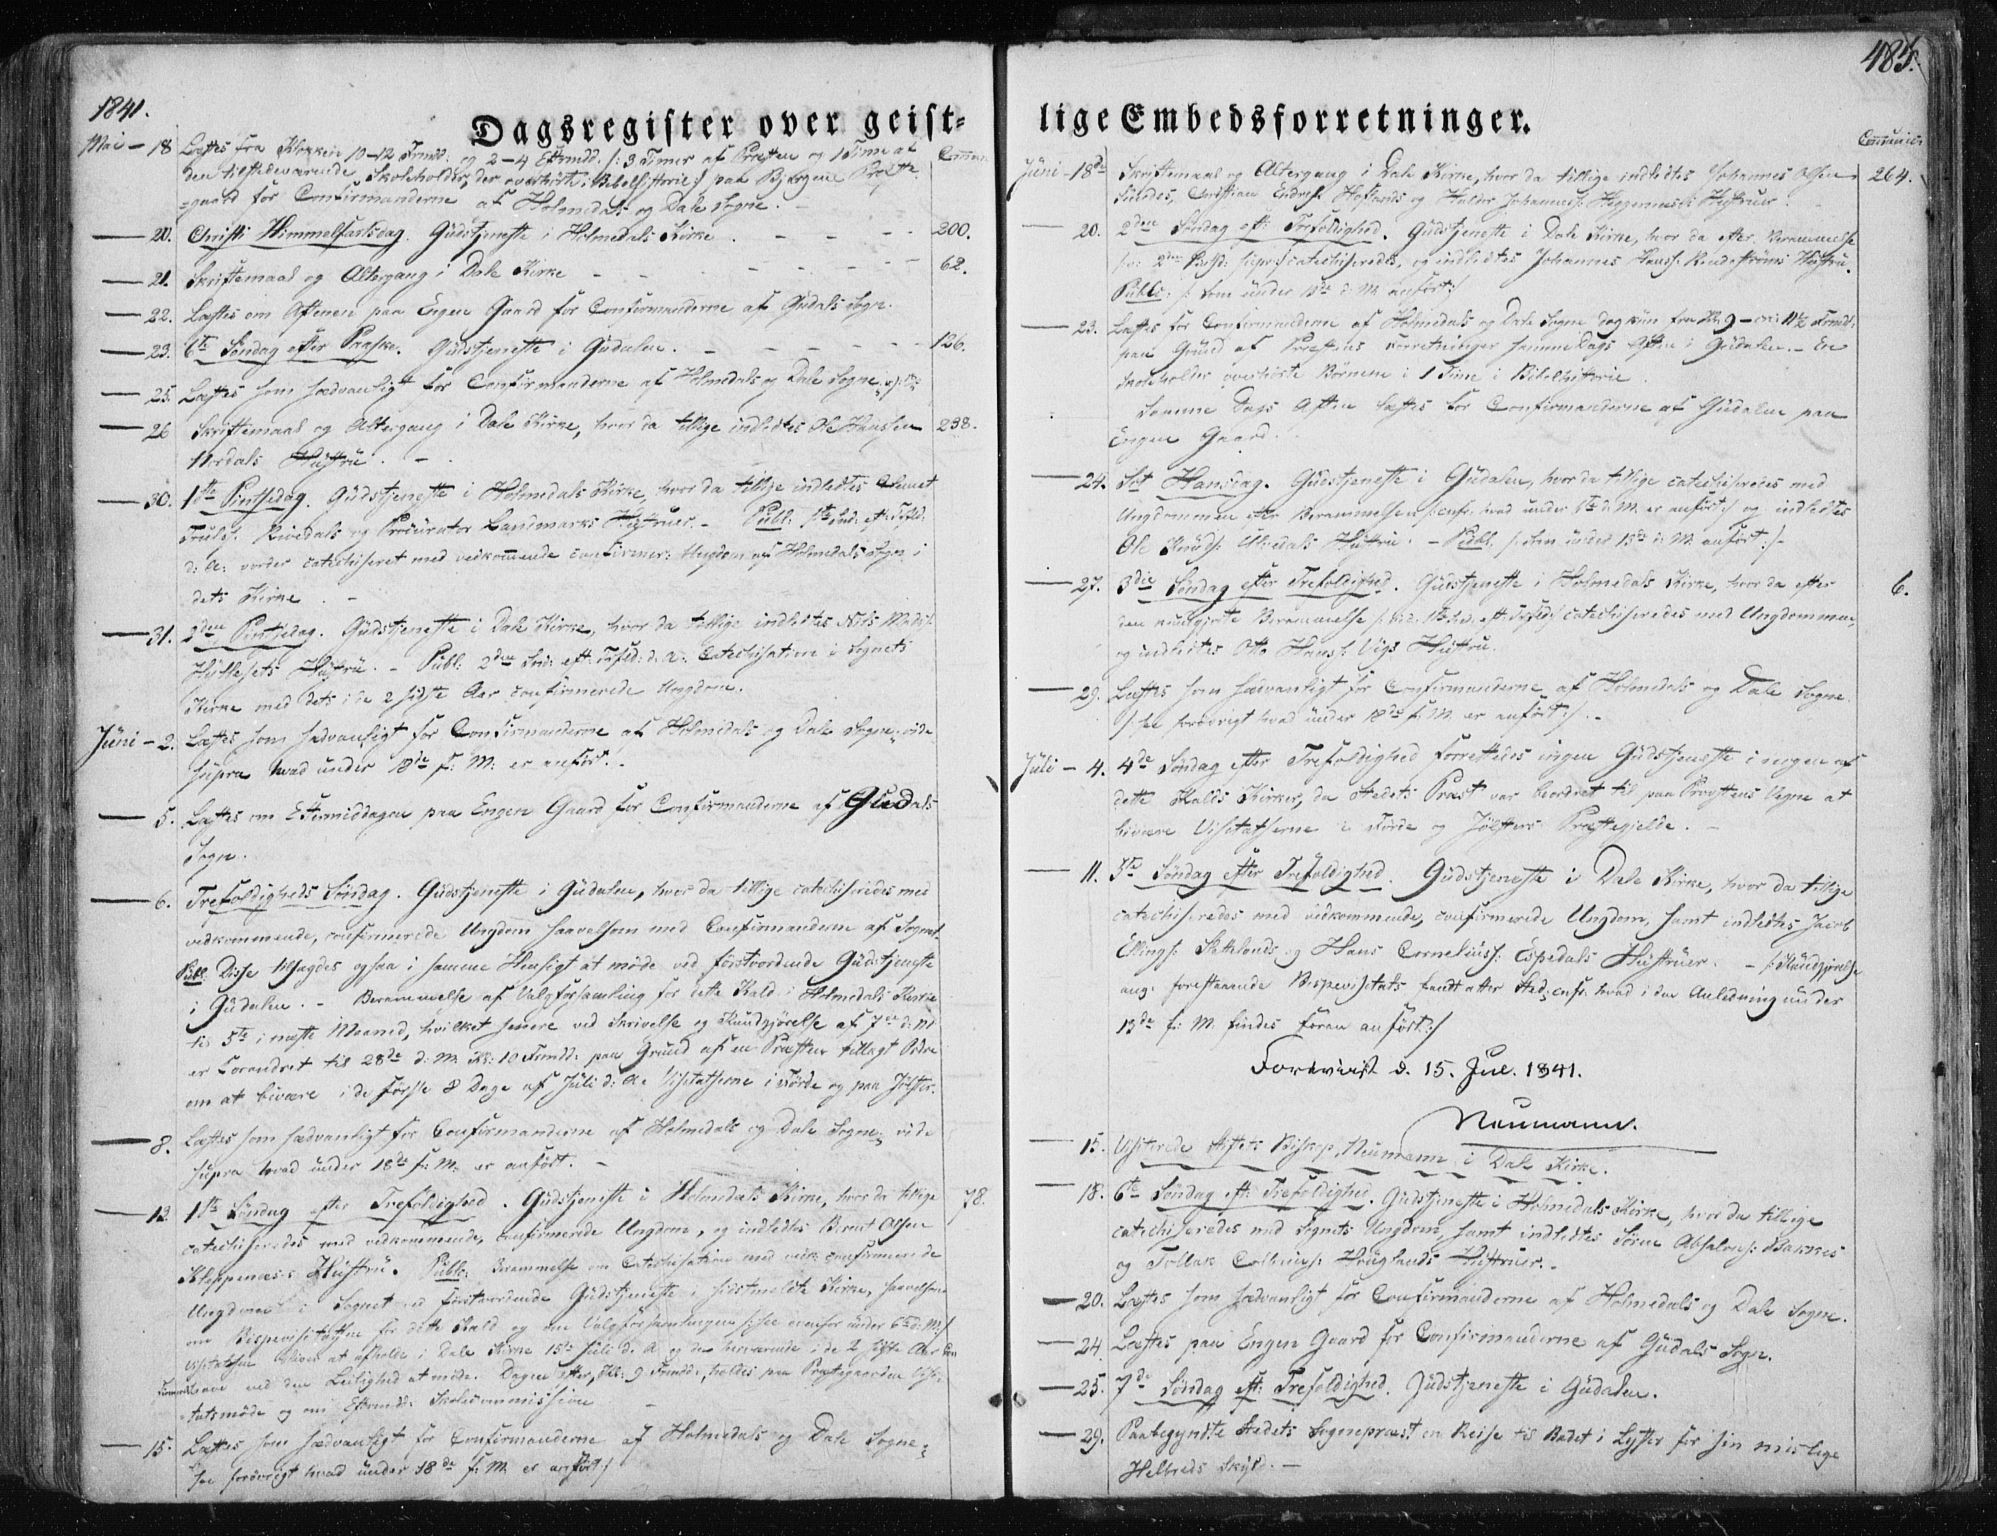 1841.
Dagsregister over geist-
Mai - 18 Læstes fra Klokken 10-12 Frmdd: og 2-4 Eftrmdd. /: 3 Timer af Præsten og 1 Time af
den tilstedeværende Skoleholder, der overhørte i Bibelhistorie :/ paa Præste-
=gaard for Confirmanderne af Holmedals og Dale Sogne.
— 20. Christi Himmelfartsdag. Gudstjeneste i Holmedals Kirke . - - - - 200.
— 21. Skriftemaal og Altergang i Dale Kirke - - - - - - 62.
— 22. Læstes om Aftenen paa Engen Gaard for Confirmanderne af Gudals Sogn.
— 23. 6te Søndag efter Paaske. Gudstjeneste i Gudalen. - - - - - 126.
— 25. Læstes som sædvanligt for Confirmanderne af Holmedals og Dale Sogne
— 26 Skriftemaal og Altergang i Dale Kirke, hvor da tillige indledtes Ole Hanssen 238.
Nordals Hustru. -
— 30. 1ste Pintsedag. Gudstjeneste i Holmedals Kirke, hvor da tillige indledtes
Rivedals og Procurator Landmarks Hustruer. - Publ: 1ste Sønd: eft: Trfld:
d: A: vorder catechiseret med vedkommende confirmer: Ungdom af Holmedals Sogn i
dets Kirke. -
— 31. 2den Pintsedag. Gudstjeneste i Dale Kirke, hvor da tillige indledtes Nils Mads:
Hustru. - Publ: 2den Snd: eft: Trfld: d: A: Catechisation i Sognets
Kirke med dets i de 2 sidste Aar confirmerede Ungdom.
Juni - 2. Læstes som sædvanligt for Confirmanderne af Holmedals og Dale Sogne, vide
supra hvad under 18de f: M: er anført. -
— 5. Læstes om Eftermiddagen paa Engen Gaard for Confirmanderne af Gudals
Sogn.
— 6. Trefoldigheds Søndag. Gudstjeneste i Gudalen, hvor da tillige catechiseredes med
vedkommende, confirmerede Ungdom saavelsom med Confirmanderne af Sognet.
Publ: Disse tilsagdes ogsaa i samme Hensigt at møde ved førstvordende Gudstjeneste
i Gudalen. - Berammelse af Valgforsamling for dette Kald i Holmedals Kirke
til 5te i næste Maaned, hvilket senere ved Skrivelse og Kundgjørelse af 7de d: M:
er forandret til 28de d: M: Kl: 10 Frmdd: paa Grund af en Præsten tillagt Ordre
om at bivære i de første 8 Dage af Juli d: A: Visitatserne i Førde og paa Jølster.
— 8. Læstes som sædvanligt for Confirmanderne af Holmedals og Dale Sogne, vide
supra hvad under 18de f: M: er anført. -
— 13. 1ste Søndag efter Trefoldighed. Gudstjeneste i Holmedals Kirke, hvor da tillige 78.
catechiseredes med vedkommende, confirmerede Ungdom, og indledtes Brent Olsen
Kleppenæs's Hustru. Publ: Berammelse om Catechisation med vedk: confirmerede
Ungdom i Sognet ved førstvordende Gudstjeneste i sidstmeldte Kirke, saavelsom
om Bispevisitatsen for dette Kald og om Valgforsamlingen /: see ovenfor under 6te d: M: :/
Visitatsen bliver at afholde i Dale Kirke 15de Juli d: A: og de herværende i de 2 sidste Aar Con-
firmerede have ved den Leilighed at møde. Dagen efter, Kl: 9 Frmdd:, holdes paa Præstegaarden Visi-
tatsmøde og om Eftrmdd: Skolecommission
— 15. Læstes som sædvanligt for Confirmanderne af Holmedals og Dale Sogne,
/: see forøvrigt hvad under 18de f: M: er anført :/
485.
lige Embedsforretninger.
Communic:
Juni - 18de Skriftemaal og Altergang i Dale Kirke, hvor da tillige indledtes Johannes Olsen 264.
Christian Endres: Hoflands og Halvor Johannes: Heggernæs's Hustruer.
— 20. 2den Søndag eft: Trefoldighed. Gudstjeneste i Dale Kirke, hvor da efter Berammelse
catechiseredes, og indledtes Johannes Hans: Hustru.
Publ: /: som under 13de d: M: anført :/
— 23. Læstes for Confirmanderne af Holmedals og Dale Sogne dog kun fra Kl: 9 - 11½ Frmdd:
paa Grund af Præstens Forretninger samme Dags Aften i Gudalen. - En
Skoleholder overhørte Børnene i 1 Time i Bibelhistorie.
Samme Dags Aften læstes for Confirmanderne af Gudalen paa
Engen Gaard.
— 24. Sct Hansdag. Gudstjeneste i Gudalen, hvor da tillige catechiseredes med
Ungdommen efter Berammelsen /: cnfr: hvad under 6te d: M: er anført :/ og indledtes
Ole Knuds: Hustru. - Publ: /: som under 13de d: M: anført :/ -
— 27. 3die Søndag efter Trefoldighed. Gudstjeneste i Holmedals Kirke, hvor da efter 6.
den kundgjorte Berammelse catechiseredes med Ungdommen,
og indledtes Otto Hans: Vigs Hustru.
— 29. Læstes som sædvanligt for Confirmanderne af Holmedals og Dale Sogne
/: see forøvrigt hvad under 18de f: M: er anført :/. -
Juli - 4. 4de Søndag efter Trefoldighed forrettedes ingen Gudstjeneste i nogen af
dette Kalds Kirker, da Stedets Præst var beordret til paa Provstens Vegne at
bivære Visitatserne i Førde og Jølsters Præstegjelde. -
— 11. 5te Søndag efter Trefoldighed. Gudstjeneste i Dale Kirke, hvor da tillige
catechiseredes med vedkommende, confirmerede Ungdom, samt indledtes Jacob
Ellings: og Hans Cornelius: Espedals Hustruer. - /: Kundgjørelse
ang: forestaaende Bispevisitats fandt atter Sted, cnfr: hvad i den Anledning under
13de f: M: findes foran anført :/
Foreviist d. 15. Jul. 1841.
Neumann.
— 15. Visiterede Stiftets Biskop, Neumann i Dale Kirke.
— 18. 6te Søndag eft: Trefoldighed. Gudstjeneste i Holmedals Kirke, hvor da tillige
catechiseredes med Sognets Ungdom, samt indledtes Søren Absalons: Bakkes
og Tollak Hustruer. -
— 20. Læstes som sædvanligt for Confirmanderne af Holmedals og Dale Sogne.
— 24. Læstes paa Engen Gaard for Confirmanderne af Gudals Sogn.
— 25. 7de Søndag eft: Trefoldighed. Gudstjeneste i Gudalen.
— 29. Paabegyndte Stedets Sognepræst en Reise til Badet i Lyster for sin mislige
Helbreds Skyld. -